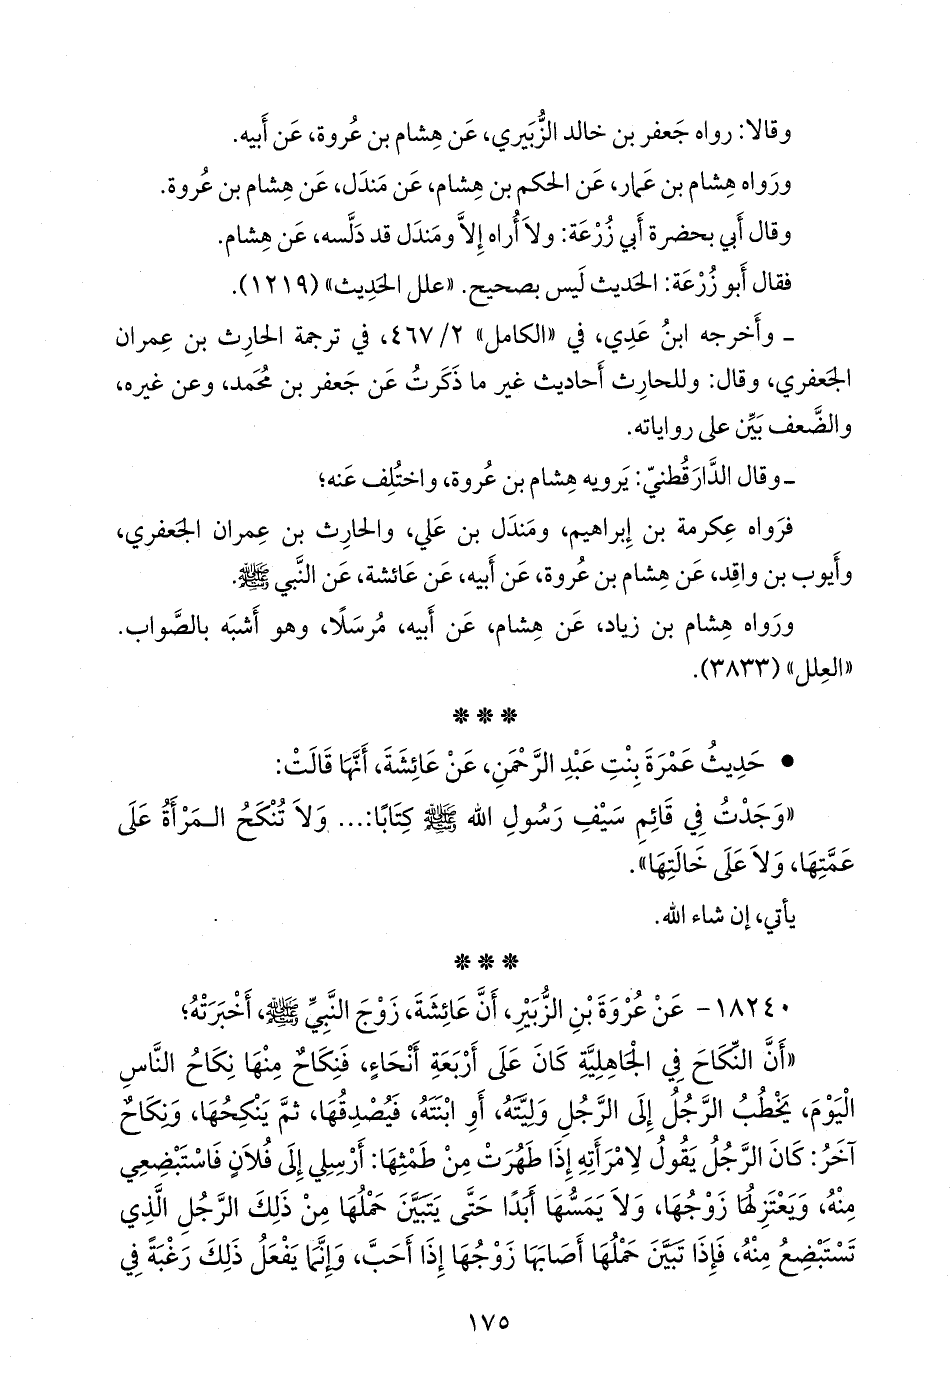 وقالا: رواه جَعفر بن خالد الزُّبَيري، عَن هِشام بن عُروة، عَن أَبيه.
ورَواه هِشام بن عَمار، عَن الحكم بن هِشام، عَن مَندَل، عَن هِشام بن عُروة.
وقال أَبي بحضرة أَبي زُرْعَة: ولاَ أُراه إِلاَّ ومَندَل قد دَلَّسه، عَن هِشام.
فقال أَبو زُرْعَة: الحَديث لَيس بصحيح. «علل الحَدِيث» (١٢١٩).
ـ وأَخرجه ابنُ عَدِي، في «الكامل» ٢/ ٤٦٧، في ترجمة الحارِث بن عِمران
الجَعفري، وقال: وللحارِث أَحاديث غير ما ذَكَرتُ عَن جَعفر بن مُحَمد، وعن غيره،
والضَّعف بَيِّن على رواياته.
ـ وقال الدَّارَقُطنيّ: يَرويه هِشام بن عُروة، واختُلِف عَنه؛
فرَواه عِكرمة بن إِبراهيم، ومَندَل بن عَلي، والحارِث بن عِمران الجَعفري،
وأَيوب بن واقِد، عَن هِشام بن عُروة، عَن أَبيه، عَن عَائشة، عَن النَّبي ﷺ.
ورَواه هِشام بن زياد، عَن هِشام، عَن أَبيه، مُرسَلًا، وهو أَشبَه بالصَّواب.
«العِلل» (٣٨٣٣).
* * *
• حَدِيثُ عَمْرَةَ بِنْتِ عَبْدِ الرَّحْمَنِ، عَنْ عَائِشَةَ، أَنَّهَا قَالَتْ:
«وَجَدْتُ فِي قَائِمِ سَيْفِ رَسُولِ الله ﷺ كِتَابًا:... وَلاَ تُنْكَحُ الـمَرْأَةُ عَلَى
عَمَّتِهَا، وَلاَ عَلَى خَالَتِهَا».
يأتي، إن شاء الله.
* * *
١٨٢٤٠- عَنْ عُرْوَةَ بْنِ الزُّبَيْرِ، أَنَّ عَائِشَةَ، زَوْجَ النَّبِيِّ ﷺ، أَخْبَرَتْهُ؛
«أَنَّ النِّكَاحَ فِي الْجَاهِلِيَّةِ كَانَ عَلَى أَرْبَعَةِ أَنْحَاءٍ، فَنِكَاحٌ مِنْهَا نِكَاحُ النَّاسِ
الْيَوْمَ، يَخْطُبُ الرَّجُلُ إِلَى الرَّجُلِ وَلِيَّتَهُ، أَوِ ابْنَتَهُ، فَيُصْدِقُهَا، ثمَّ يَنْكِحُهَا، وَنِكَاحٌ
آخَرُ: كَانَ الرَّجُلُ يَقُولُ لِامْرَأَتِهِ إِذَا طَهُرَتْ مِنْ طَمْثِهَا: أَرْسِلِي إِلَى فُلاَنٍ فَاسْتَبْضِعِي
مِنْهُ، وَيَعْتَزِلُهَا زَوْجُهَا، وَلاَ يَمَسُّهَا أَبَدًا حَتَّى يَتَبَيَّنَ حَمْلُهَا مِنْ ذَلِكَ الرَّجُلِ الَّذِي
تَسْتَبْضِعُ مِنْهُ، فَإِذَا تَبَيَّنَ حَمْلُهَا أَصَابَهَا زَوْجُهَا إِذَا أَحَبَّ، وَإِنَّمَا يَفْعَلُ ذَلِكَ رَغْبَةً فِي
١٧٥